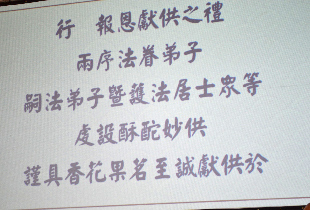 行 報恩獻供之禮
兩序法眷弟子
嗣法弟子暨護法居士眾等
虔設酥酡妙供
謹具香花果茗至誠獻供於